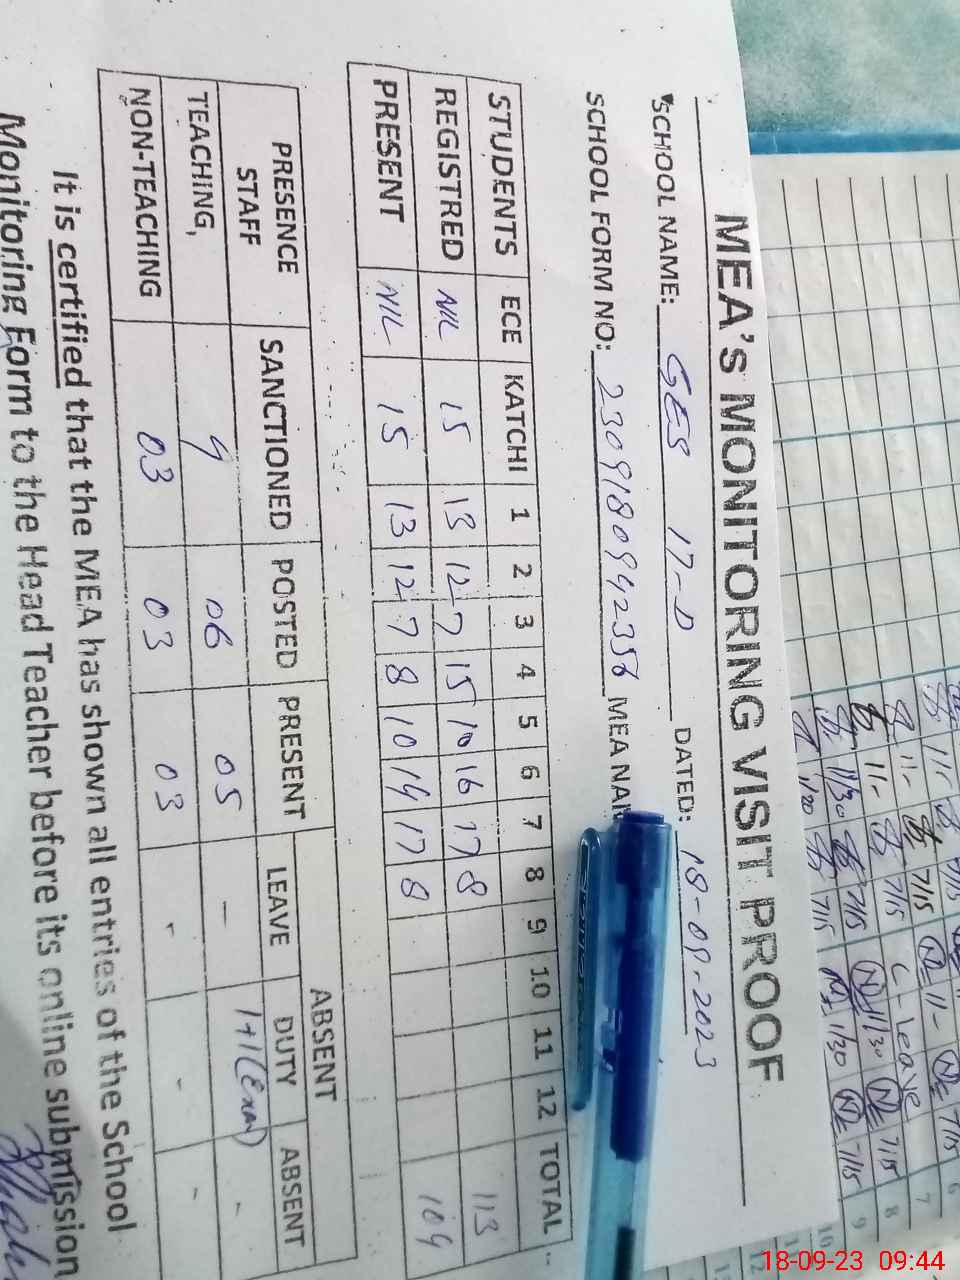 MEA's MONITORING VISIT PROOF
SCHOOL NAME: GES 17-D DATED: 18-09-2023
SCHOOL FORM NO: 2309180942356 MEA NA
STUDENTS ECE KATCHI 1 2 3 4 5 6 7 8 9 10 11 12 TOTAL
REGISTRED NIL 15 13 12 7 15 10 16 17 8 113
PRESENT NIL 15 13 12 7 8 10 14 17 8 104
PRESENCE STAFF SANCTIONED POSTED PRESENT ABSENT
LEAVE DUTY ABSENT
TEACHING, 9 06 05 - 1+1(Exam) -
NON-TEACHING 03 03 03 - - -
It is certified that the MEA has shown all entries of the School
Monitoring Form to the Head Teacher before its online submission
11- 7/15 11- 7/15
11- 7/15 C-leave
11/30 7/15 11/30 7/15
1/20 7/15 1/30 7/15
6
7
8
9
10
11
12
18-09-23 09:44